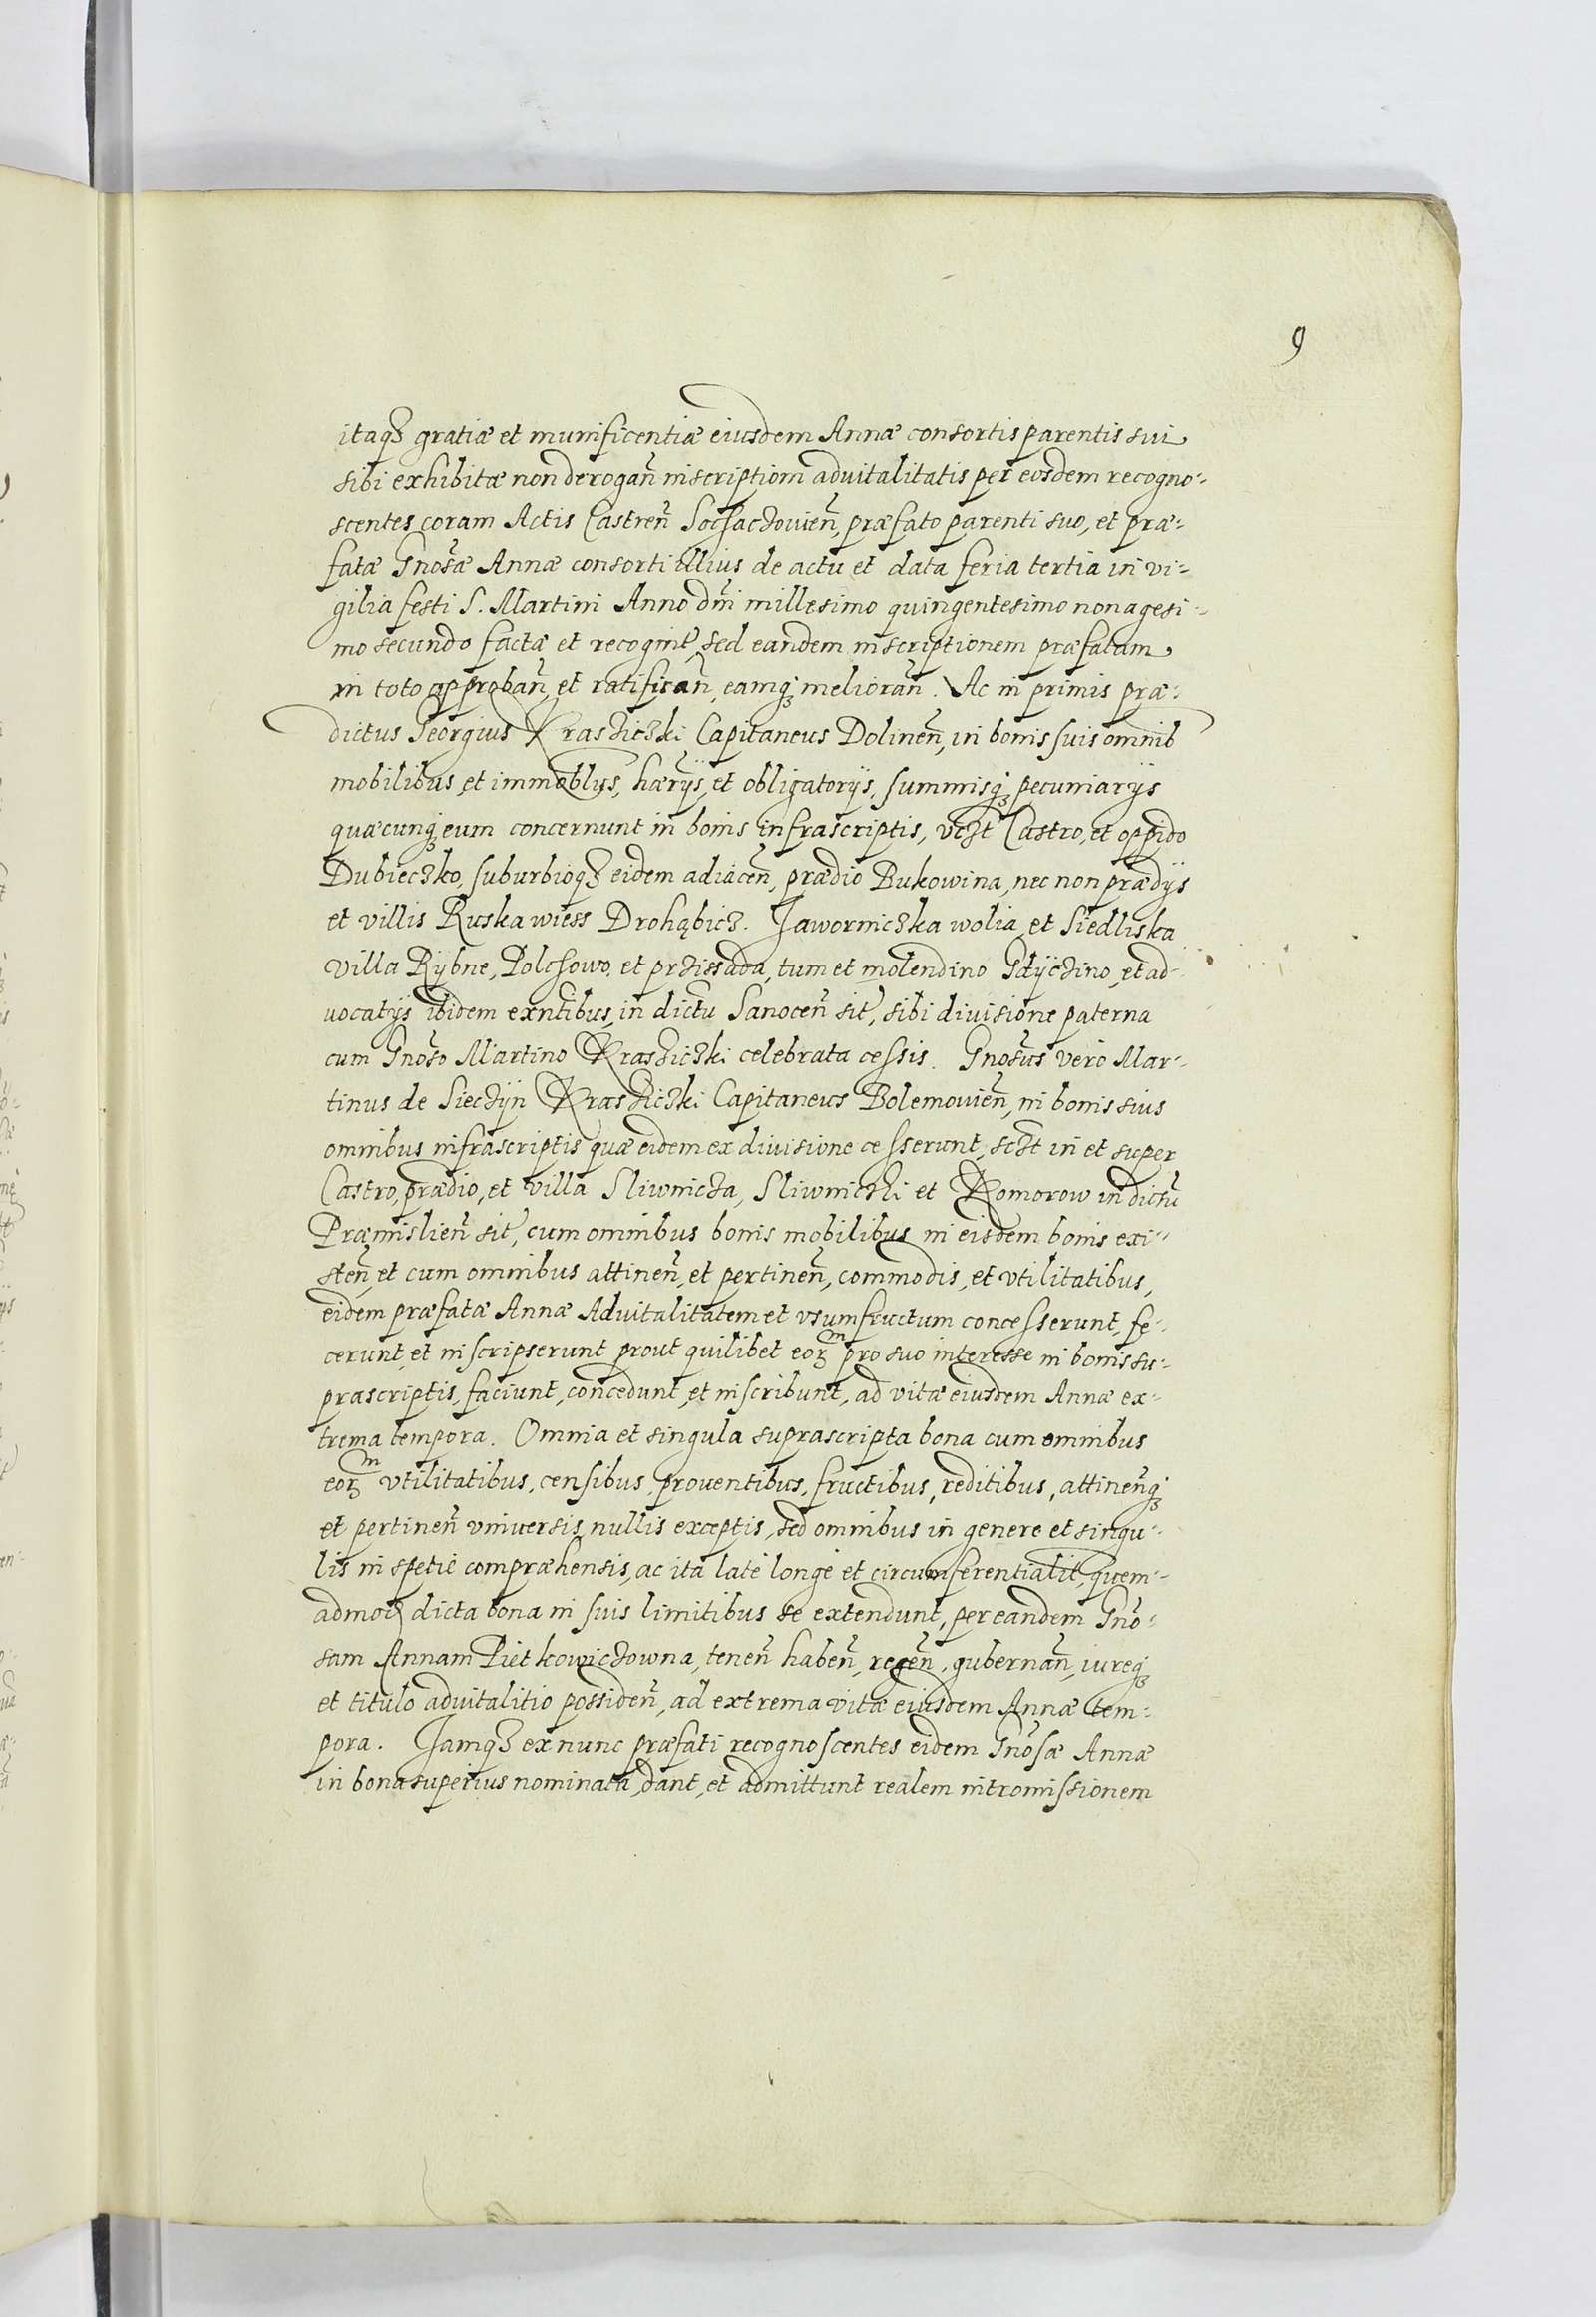 9
itaqȝ gratiæ et munificentiæ eiusdem Annæ consortis parentis sui
sibi exhibitæ non derogan̄ inscriptioni advitalitatis per eosdem recogno-
scentes coram Actis Castren̄ Sochaczovien̄, præfato parenti suo, et præ-
fatæ Gnosæ Annæ consorti illius de actu et data feria tertia in vi-
gilia festi S. Martini Anno dm̄i millesimo quingentesimo nonagesi-
mo secundo factæ et recognit, sed eandem inscriptionem præfatam
in toto approban̄, et ratifican̄, eamqȝ melioran̄. Ac in primis præ-
dictus Georgius Krasziczki Capitaneus Dolinen̄, in bonis suis omnib
mobilibus, et immoblys, hærÿs, et obligatorÿs, summisqȝ pecuniarys
quæcunqȝ eum concernunt in bonis infrascriptis, vczt Castro, et oppido
Dubieczko, suburbioqȝ eidem adiacen̄, prædio Bukowina, nec non prædÿs
et villis Ruska wiess Drohąbicz. Jaworniczka wolia et Siedliska
villa Rÿbne, Polchowo, et przissada, tum et molendino Gdÿczino, et ad-
vocatÿs ibidem exn̄tibus, in dictu Sanocen̄ sit, sibi divisione paterna
cum Gnoso Martino Krasziczki celebrata cessis. Gnosus vero Mar-
tinus de Sieczÿn Krasziczki Capitaneus Bolemovien̄, in bonis suis
omnibus infrascriptis quæ eidem ex divisione cesserunt, sczt in et super
Castro, prædio, et villa Sliwnicza, Sliwniczki et Komorow in dictu
Præmislien̄ sit, cum omnibus bonis mobilibus in eisdem bonis exi-
sten̄, et cum omnibus attinen̄, et pertinen̄, commodis, et vtilitatibus,
eidem præfatæ Annæ Advitalitatem et vsumfructum concesserunt, fe-
cerunt, et inscripserunt prout quilibet eoꝝm pro suo interesse in bonis su-
prascriptis, faciunt, concedunt, et inscribunt, ad vitæ eiusdem Annæ ex-
trema tempora. Omnia et singula suprascripta bona cum omnibus
eoꝝm vtilitatibus, censibus, proventibus, fructibus, reditibus, attinen̄qȝ
et pertinen̄ vniversis, nullis exceptis, sed omnibus in genere et singu-
lis in spetie compræhensis, ac ita late longe et circumferentialit, quem-
admoꝝ dicta bona in suis limitibus se extendunt, per eandem Gno-
sam Annam Pietkowiczowna, tenen̄ haben̄, regen̄, gubernan̄, iureqȝ
et titulo advitalitio possiden̄, ad extrema vitæ eiusdem Annæ tem-
pora. Jamqȝ ex nunc præfati recognoscentes eidem Gnosæ Annæ
in bona superius nominata, dant, et admittunt realem intromissionem